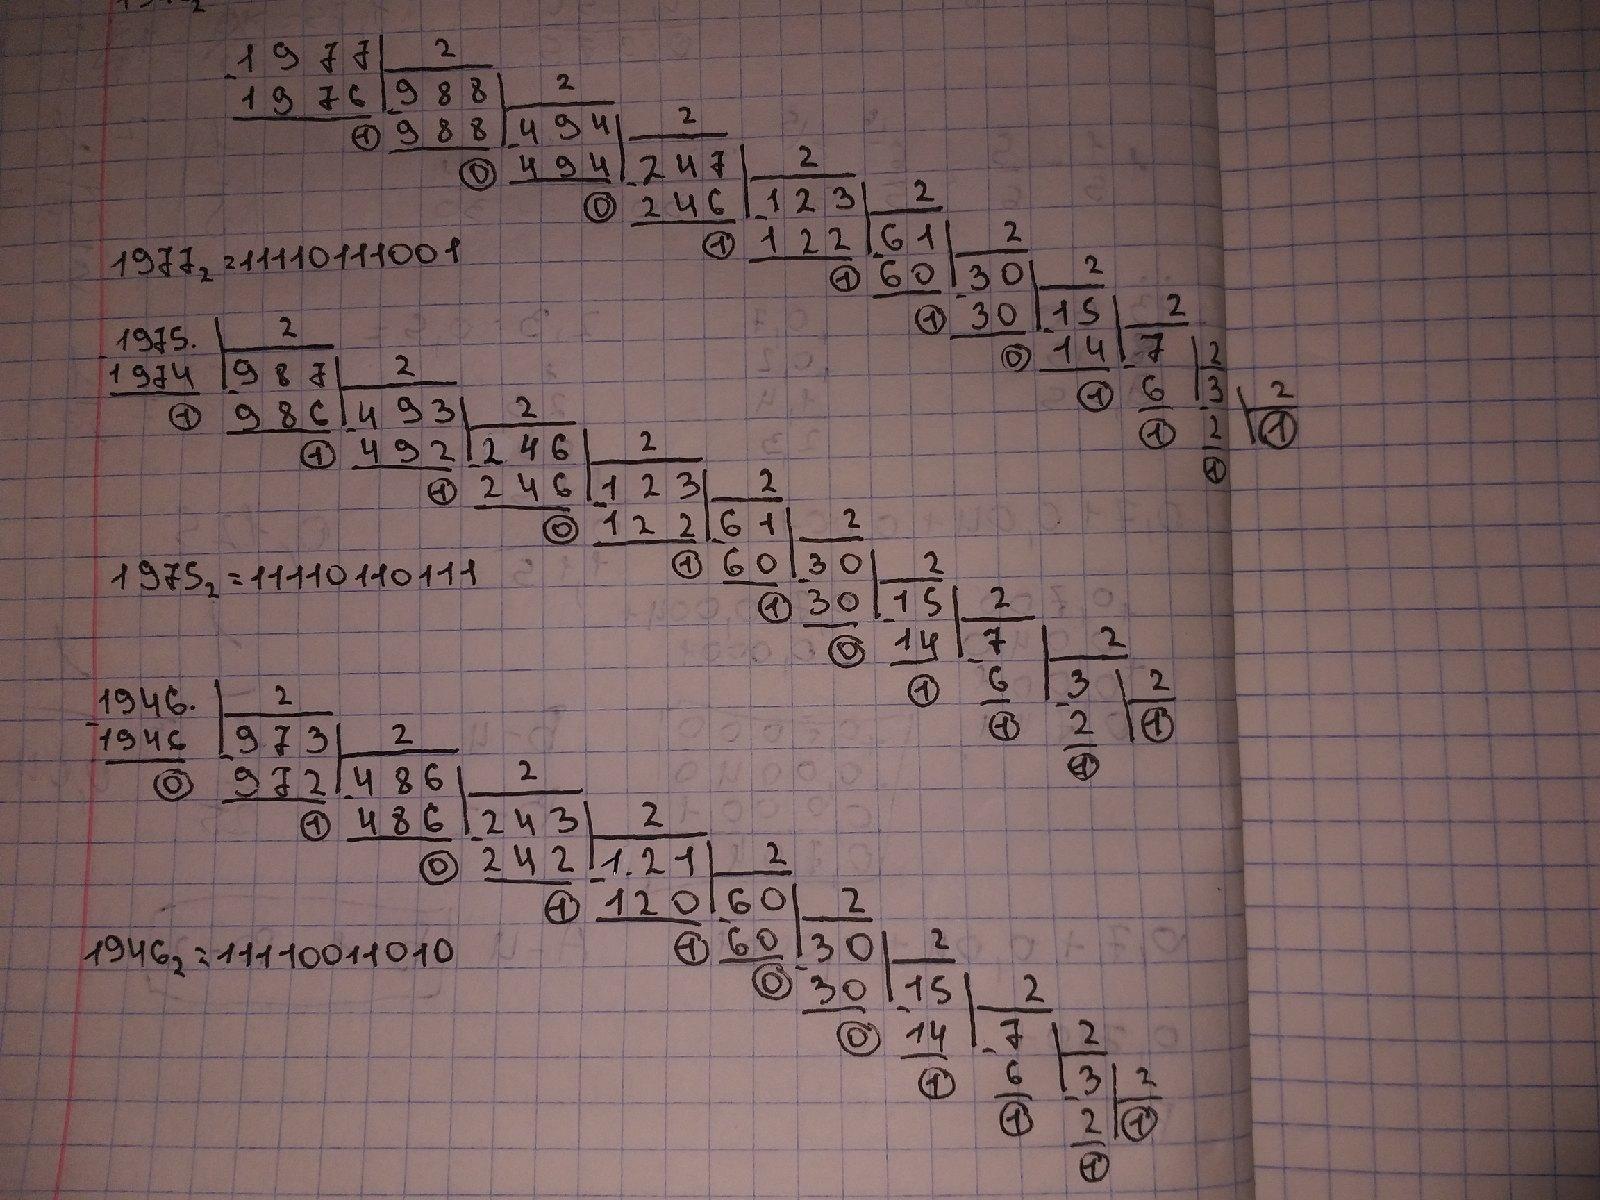 1977 2
1976 988 2
1 988 494 2
0 494 247 2
0 246 123 2
1 122 61 2
1977₂=11110111001
1 60 30 2
1 30 15 2
0 14 7 2
1 6 3 2
1 2 1
1
1975. 2
1974 987 2
1 986 493 2
1 492 246 2
1 246 123 2
0 122 61 2
1975₂=11110110111
1 60 30 2
1 30 15 2
0 14 7 2
1 6 3 2
1 2 1
1
1946. 2
1946 973 2
0 972 486 2
1 486 243 2
0 242 1.21 2
1 120 60 2
1946₂=11110011010
1 60 30 2
0 30 15 2
0 14 7 2
1 6 3 2
1 2 1
1